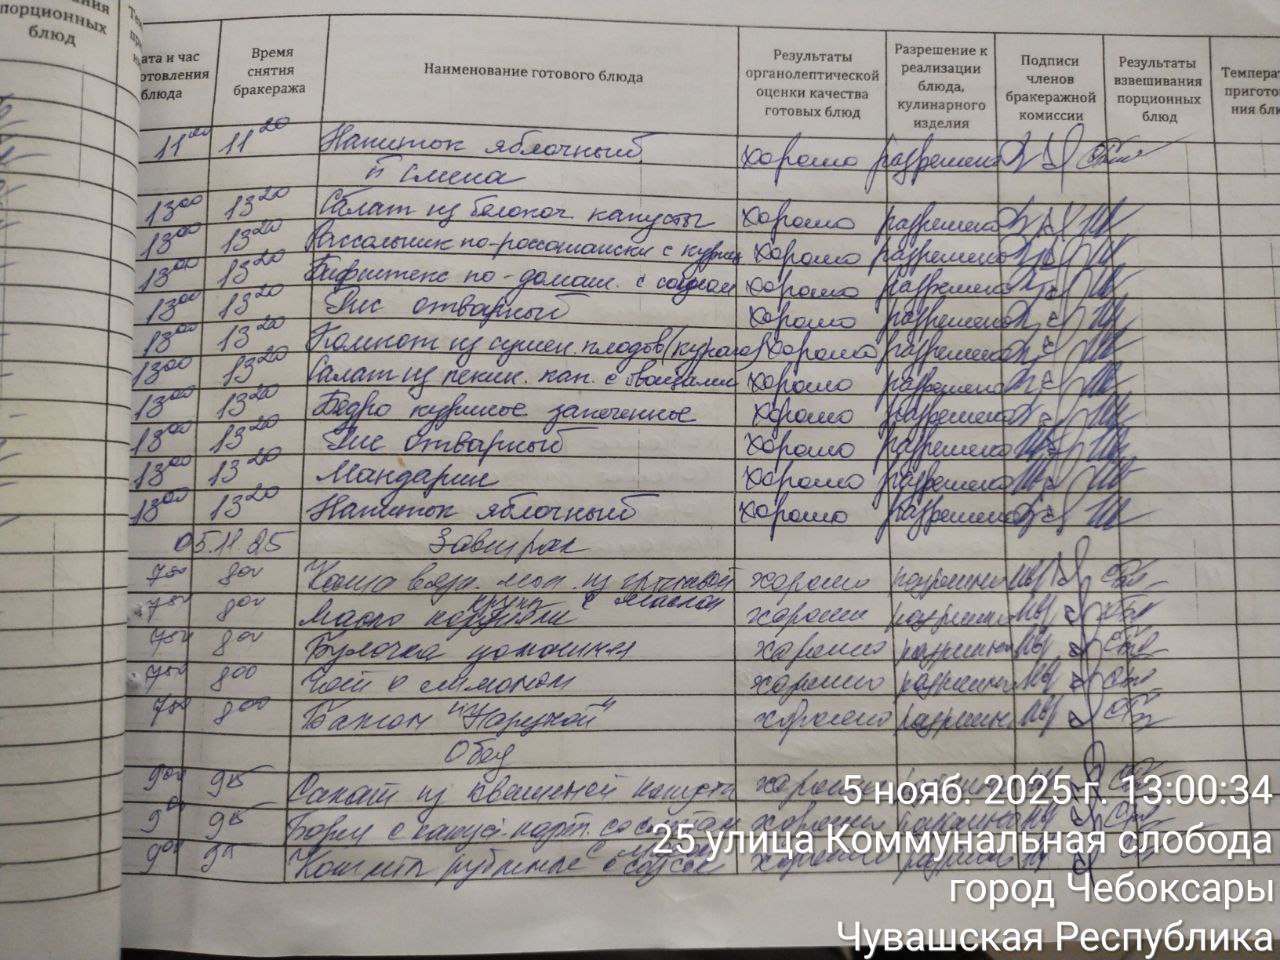 порционных блюд
ата и час отовления блюда
Время снятия бракеража
Наименование готового блюда
Результаты органолептической оценки качества готовых блюд
Разрешение к реализации блюда, кулинарного изделия
Подписи членов бракеражной комиссии
Результаты взвешивания порционных блюд
Температ приготов ния блю
11 20 11 20 Напиток яблочный хорошо разрешено
II смена
13 00 13 20 Салат из белокоч. капусты хорошо разрешено
13 00 13 20 Рассольник по-россошански с куриц хорошо разрешено
13 00 13 20 Бифштекс по-домаш. с соусом хорошо разрешено
13 00 13 20 Рис отварный хорошо разрешено
13 00 13 20 Компот из сушен. плодов (курага) хорошо разрешено
13 00 13 20 Салат из пекин. кап. с овощами хорошо разрешено
13 00 13 20 Бедро куриное запеченное хорошо разрешено
13 00 13 20 Рис отварный хорошо разрешено
13 00 13 20 Мандарин хорошо разрешено
13 00 13 20 Напиток яблочный хорошо разрешено
05.11.25 Завтрак
7 50 8 00 Каша вязк. мол. из хорошо разрешено
крупы с маслом
7 50 8 00 Масло хорошо разрешено
7 50 8 00 Булочка домашняя хорошо разрешено
7 50 8 00 Чай с лимоном хорошо разрешено
7 50 8 00 Батон "Нарезной" хорошо разрешено
Обед
9 00 9 15 Салат из квашеной капусты хорошо
9 00 9 15 Борщ с капус. карт. со сметан хорошо
9 00 Котлета рубленые с соусом хорошо
5 нояб. 2025 г. 13:00:34
25 улица Коммунальная слобода
город Чебоксары
Чувашская Республика